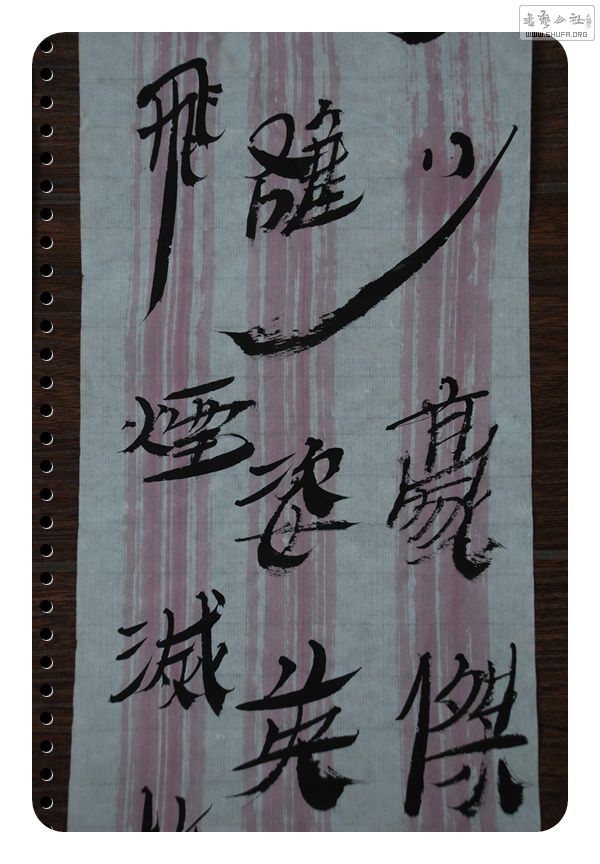 少豪傑
雄姿英
飛煙滅
書藝公社
WWW.SHUFA.ORG